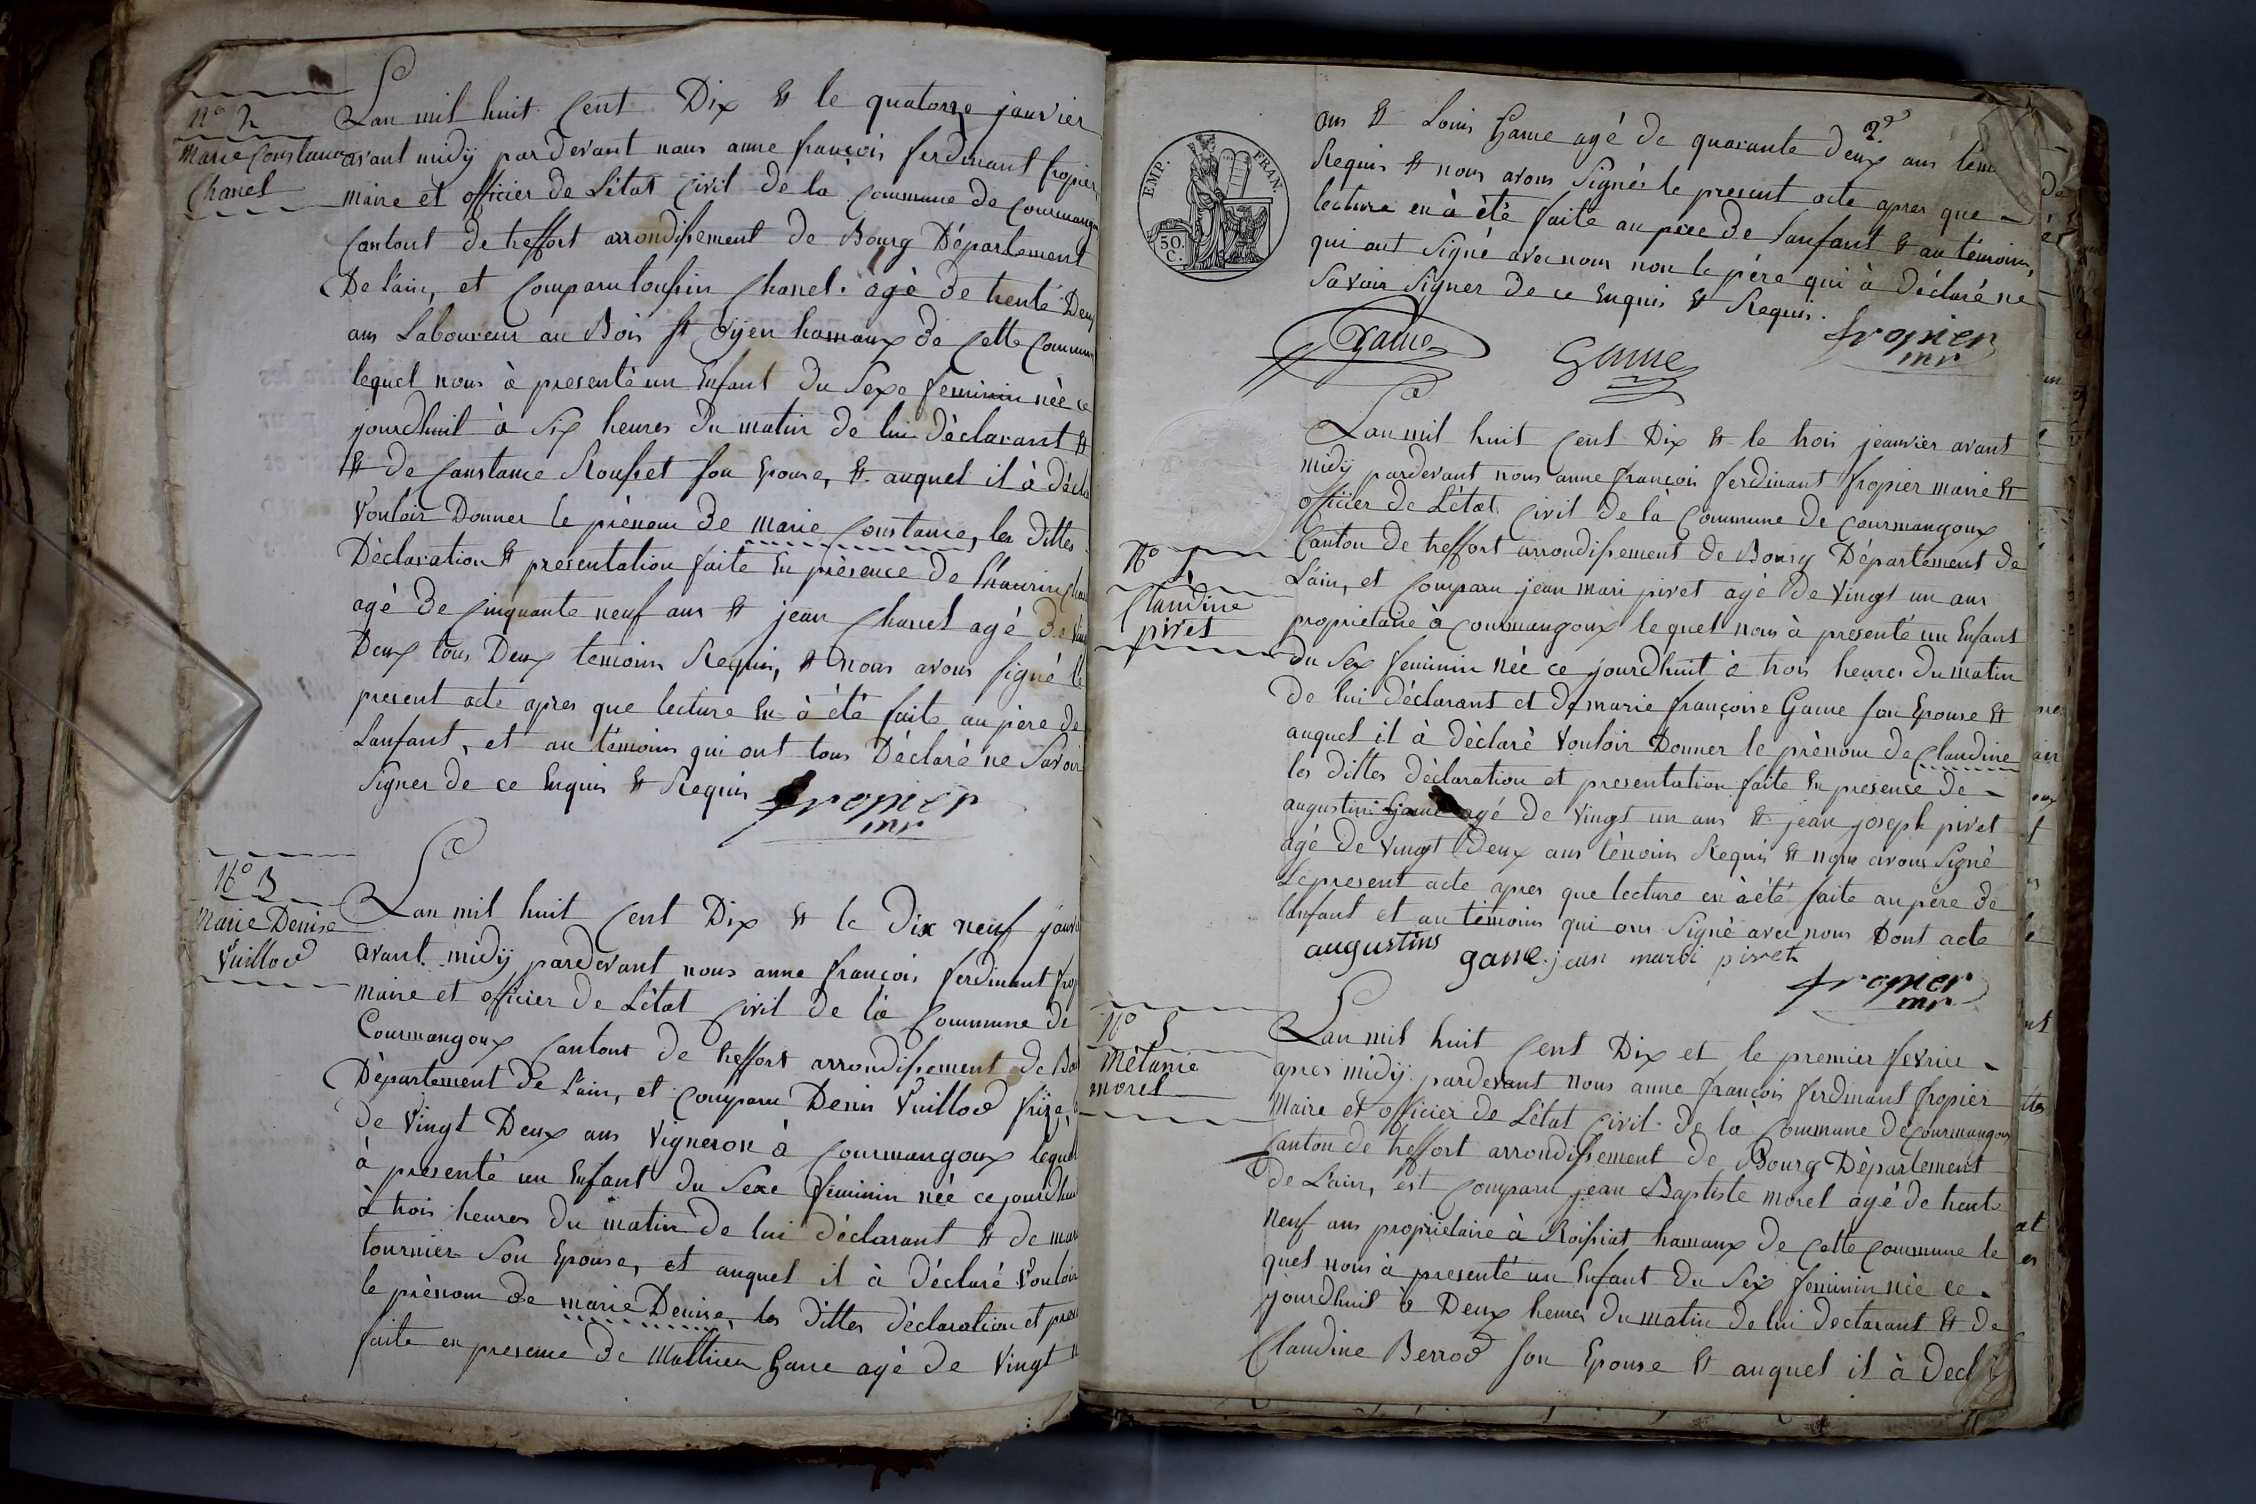 n° 2
Marie Constance
Chanel
Lan mil huit Cent Dix & le quatorze janvier
avant midÿ pardevant nous anne françois ferdinant fropier
maire et officier de Létat Civil de la Commune de Courmangoux
Contont de treffort arrondissement de Bourg Département
De Lain, et Comparu Chanel. agè de trente Deux
ans Laboureur au Bois st hamaux de Cette Commune
lequel nous à presenté un Enfant du Sexe feminin nèè ce
jourdhuit à Six heures du matin de lui dèclarant &
& de Constance Rousset son Epouse, & auquel il à décla
Vouloir Donner le prènom de marie Constance, les dittes
Dèclaration & presentation faite En prèsence de
agé de Cinquante neuf ans & jean Chanel agé de
Deux tous Deux temoins Requis, & nous avons signé le
present acte apres que lecture En à été faite au père de
Lanfant, et au témoins qui ont tous Déclaré ne Savoir
Signer de ce Enquis & Requis
fropier
mr
N° 3
Marie Denise
Vuillod
Lan mil huit Cent Dix & le Dix neuf janvi
avant midÿ pardevant nous anne françois ferdinant frop
maire et officier de Létat Civil de la Commune de
Courmangoux Contont de treffort arrondissement de Bou
Département de Lain, et Comparu Denis Vuillod
de Vingt Deux ans Vigneron à Courmangoux lequel
à presenté un Enfant du Sexe féminin nèè ce jourdhuit
à trois heures du matin de lui déclarant & de mari
tournier Son Epouse, et auquel il à déclaré Vouloir
le prènom de marie Denise, les dittes déclaration et presen
faite en presence de Mathieu Game agé de Vingt
EMP. FRAN.
50.
C.
2e
ans & Louis Game agé de quarante deux ans tem
Requis & nous avons Signés le present acte apres que
lecture en à été faite au père de Lanfant & au témoins,
qui ont Signé avec nous non le père qui à déclaré ne
Savoir Signer de ce Enquis & Requis.
Game
Game
fropier
mr
Lan mil huit Cent Dix & le trois jeanvier avant
midÿ pardevant nous anne françois ferdinant fropier maire &
officier de Létat Civil de là Commune de Courmangoux
Canton de treffort arrondissement de Bourg Département de
Lain, et Comparu jean mari pivet agé de Vingt un ans
propriétaire à Courmangoux lequel nous à presenté un Enfant
du Sex feminin nèè ce jourdhuit à trois heures du matin
de lui déclarant et de marie françoise Game son Epouse &
auquel il à déclaré Vouloir Donner le prènom de Claudine
les dittes dèclaration et presentation faite En presence de
augustin Game agé de Vingt un ans & jean joseph pivet
agé de Vingt Deux ans tèmoins Requis & nous avons Signé
Le present acte apres que lecture en à été faite au père de
lanfant et au témoins qui ons Signé avec nous Dont acte
N° 1
Claudine
pivet
augustins game jean marÿ pivet
fropier
mr
N° 5
Mélanie
morel
Lan mil huit Cent Dix et le premier fevrier
apres midÿ pardevant nous anne françois ferdinant fropier
Maire et officier de Létat Civil de là Commune de Courmangoux
Canton de treffort arrondissement de Bourg Département
de Lain, est Comparu jean Baptiste morel agé de trente
neuf ans proprietaire à Roissiat hamaux de Cette Commune le
quel nous à presenté un Enfant du Sex feminin nèè ce
jourdhuit à Deux heures du matin de lui declarant & de
Claudine Berrod son Epouse & auquel il à decl